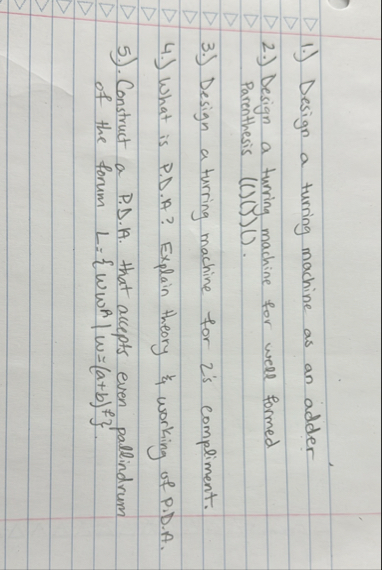 1.) Design a turring machine as an adder
2.) Design a turring machine for well formed
Parenthesis (()())().
3.) Design a turring machine for 2's compliment.
4.) What is P.D.A? Explain theory & working of P.D.A.
5.). Construct a P.D.A. that accepts even pallindrum
of the forum L = {wwᴿ | w = (a+b)⁺}.